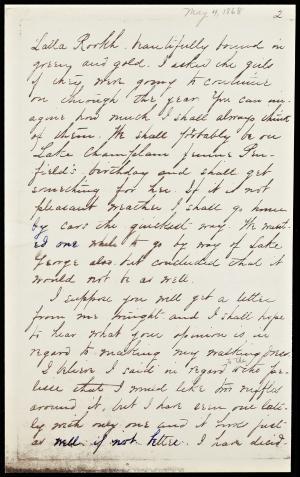 May 4, 1868
2
Lalla Rookh, beautifully bound in
green and gold. I asked the girls
if they were going to continue
on through the year. You can im-
agine how much I shall always think
of them. We shall probably be on
Lake Champlain Jennie Pen-
field's birthday and shall get
something for her. If it is not
pleasant weather I shall go home
by cars the quickest way. We want-
ed one while to go by way of Lake
George also, but concluded that it
would not be as well.
I suppose you will get a letter
from me tonight and I shall hope
to hear what your opinion is in
regard to making my walking dress
I believe I said in regard to the
lisse that I would like two ruffles
around it, but I have seen one late-
ly with only one and it looks just
as well if not better. I have decid